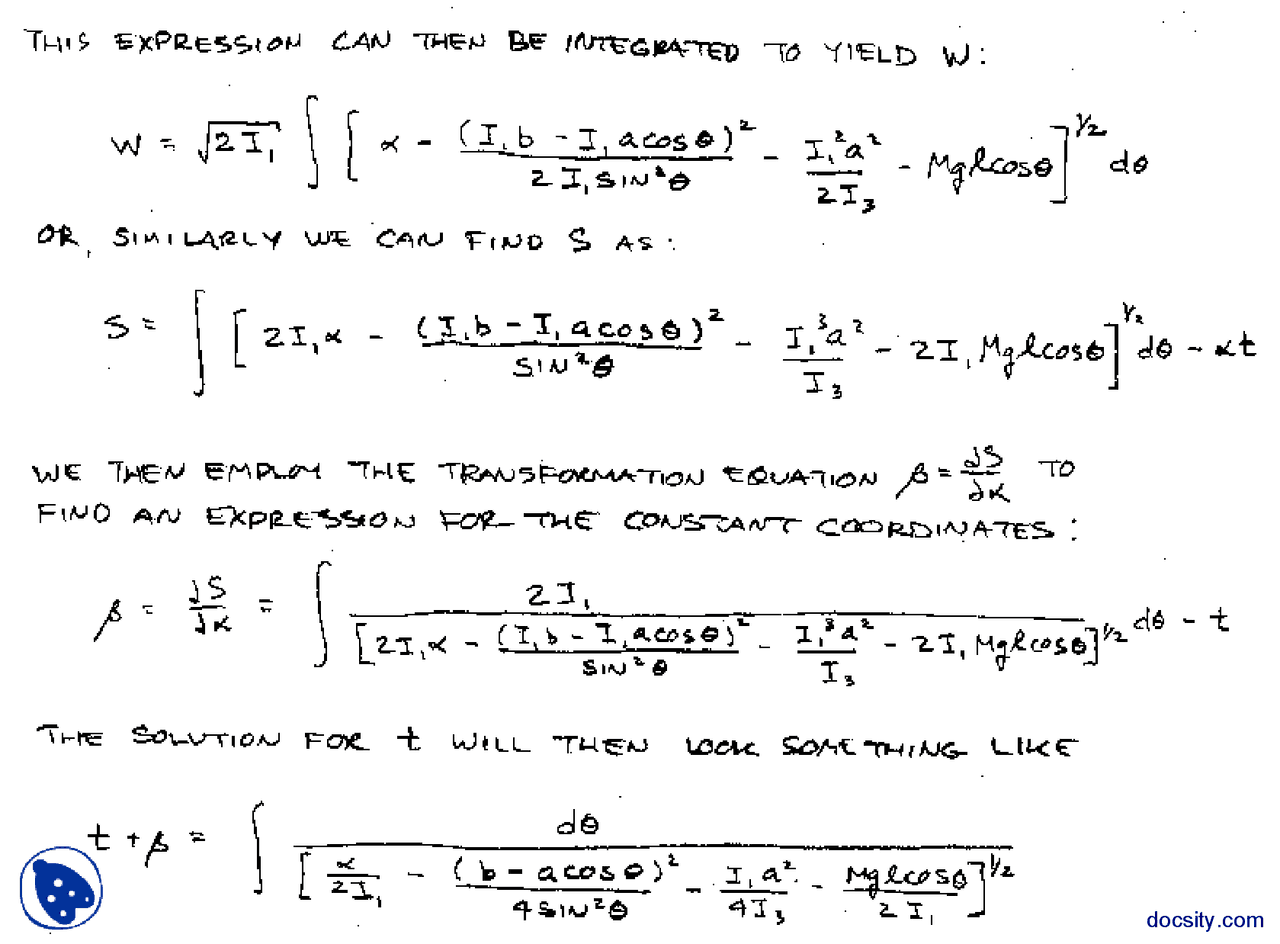 THIS EXPRESSION CAN THEN BE INTEGRATED TO YIELD W:
W = √(2I₁) ∫ [ α - (I₁b - I₁acosθ)²/(2I₁SIN²θ) - I₁²a²/(2I₃) - Mglcosθ ]^½ dθ
OR, SIMILARLY WE CAN FIND S AS:
S = ∫ [ 2I₁α - (I₁b - I₁acosθ)²/(SIN²θ) - I₁³a²/I₃ - 2I₁Mglcosθ ]^½ dθ - αt
WE THEN EMPLOY THE TRANSFORMATION EQUATION β = ∂S/∂α TO
FIND AN EXPRESSION FOR THE CONSTANT COORDINATES:
β = ∂S/∂α = ∫ 2I₁/[2I₁α - (I₁b - I₁acosθ)²/(SIN²θ) - I₁³a²/I₃ - 2I₁Mglcosθ]^½ dθ - t
THE SOLUTION FOR t WILL THEN LOOK SOMETHING LIKE
t + β = ∫ dθ/[α/(2I₁) - (b - acosθ)²/(4SIN²θ) - I₁a²/(4I₃) - Mglcosθ/(2I₁)]^½
docsity.com